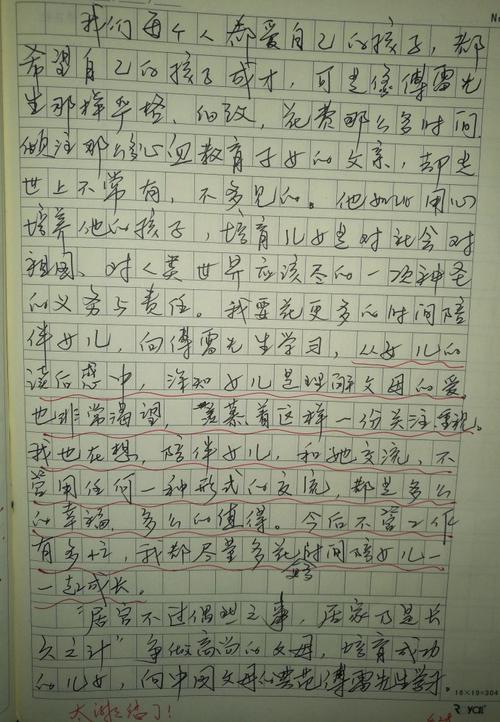 我们每个人都爱自己的孩子，都
希望自己的孩子成才，可是像傅雷先
生那样严格、细致，花费那么多时间
倾注那么多心血教育子女的父亲，却是
世上不常有，不多见的。他如此用心
培养他的孩子，培育儿女是对社会对
祖国、对人类世界应该尽的一次神圣
的义务与责任。我要花更多的时间陪
伴女儿，向傅雷先生学习，从女儿的
读后感中，深知女儿是理解父母的爱，
也非常渴望，羡慕着这样一份关注重视。
我也在想，陪伴女儿，和她交流，不
管用任何一种形式的交流，都是多么
的幸福，多么的值得。今后不管工作
有多忙，我都尽量多花时间陪女儿一
一起成长。
"居官不过偶然之事，居家乃是长
久之计"争做高尚的父母，培育成功
的儿女，向中国父母的典范傅雷先生学习
太激动了！
16×19=304